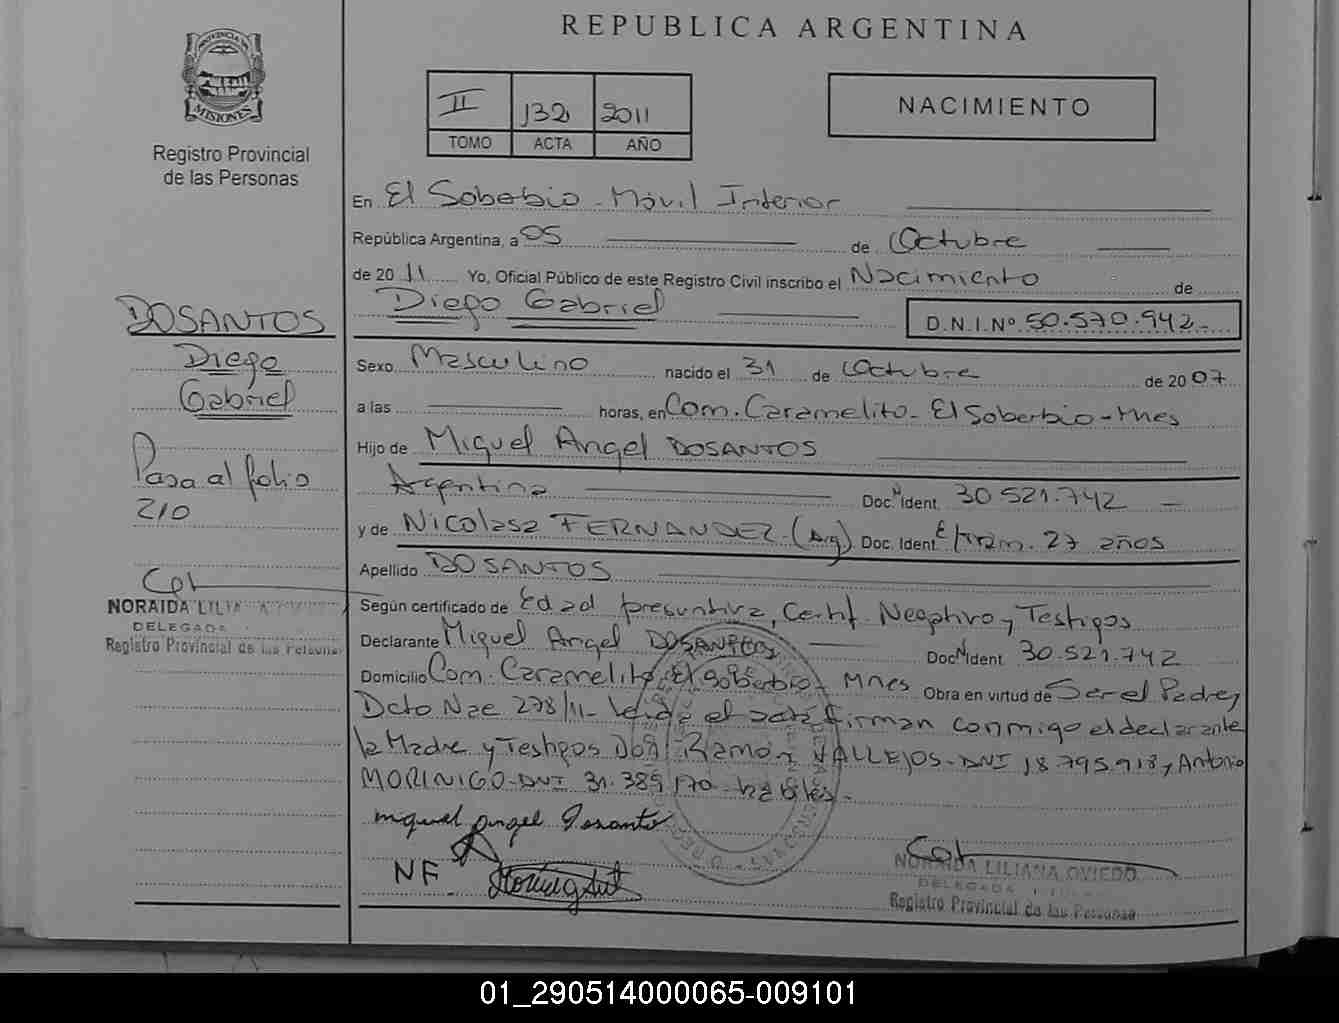 REPUBLICA ARGENTINA
PROVINCIA DE
MISIONES
Registro Provincial
de las Personas
II 132 2011
TOMO ACTA AÑO
NACIMIENTO
En El Soberbio - Móvil Interior
República Argentina, a 05 de Octubre
de 20 11 Yo, Oficial Público de este Registro Civil inscribo el Nacimiento de
Diego Gabriel D.N.I.Nº 50.570.942-
DOSANTOS
Diego
Gabriel
Pasa al folio
210
NORAIDA LILIANA
DELEGADA
Registro Provincial de las Personas
Sexo Masculino nacido el 31 de Octubre de 20 07
a las horas, en Com. Caramelito - El Soberbio - Mnes
Hijo de Miguel Angel DOSANTOS
Argentina Doc. Nº Ident. 30.521.742 -
y de Nicolasa FERNANDEZ. (Arg) Doc. Ident. E/trám. 27 años
Apellido DOSANTOS
Según certificado de Edad presuntiva, Certif. Negativo y Testigos
Declarante Miguel Angel DOSANTOS Doc Nº Ident. 30.521.742
Domicilio Com. Caramelito, El Soberbio - Mnes Obra en virtud de Ser el Padre y
Dcto Nac 278/11- Leída el acta firman conmigo el declarante
la Madre y Testigos Don Ramón VALLEJOS - DNI 18.795.918 y Antonio
MORINIGO - DNI 31.385.170 - hábiles -
miguel angel Dosanto
NF
NORAIDA LILIANA OVIEDO
DELEGADA TITULAR
Registro Provincial de las Personas
01_290514000065-009101